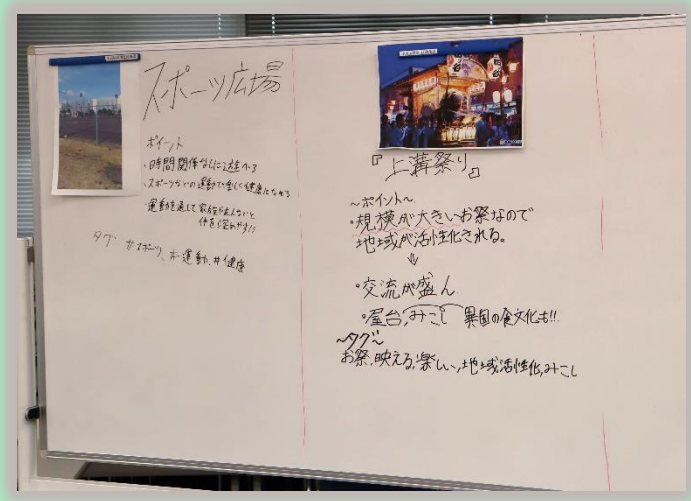 スポーツ広場
ポイント
・時間関係なしに遊べる
・スポーツなどの運動で楽しく健康になれる
・運動を通して家族や友人などと
仲を深めやすい!
タグ #スポーツ、#運動、#健康
『上溝祭り』
~ポイント~
・規模が大きいお祭なので
地域が活性化される。
⇓
・交流が盛ん
・屋台,みこし 異国の食文化も!!
~タグ~
お祭,映える,楽しい,地域活性化,みこし